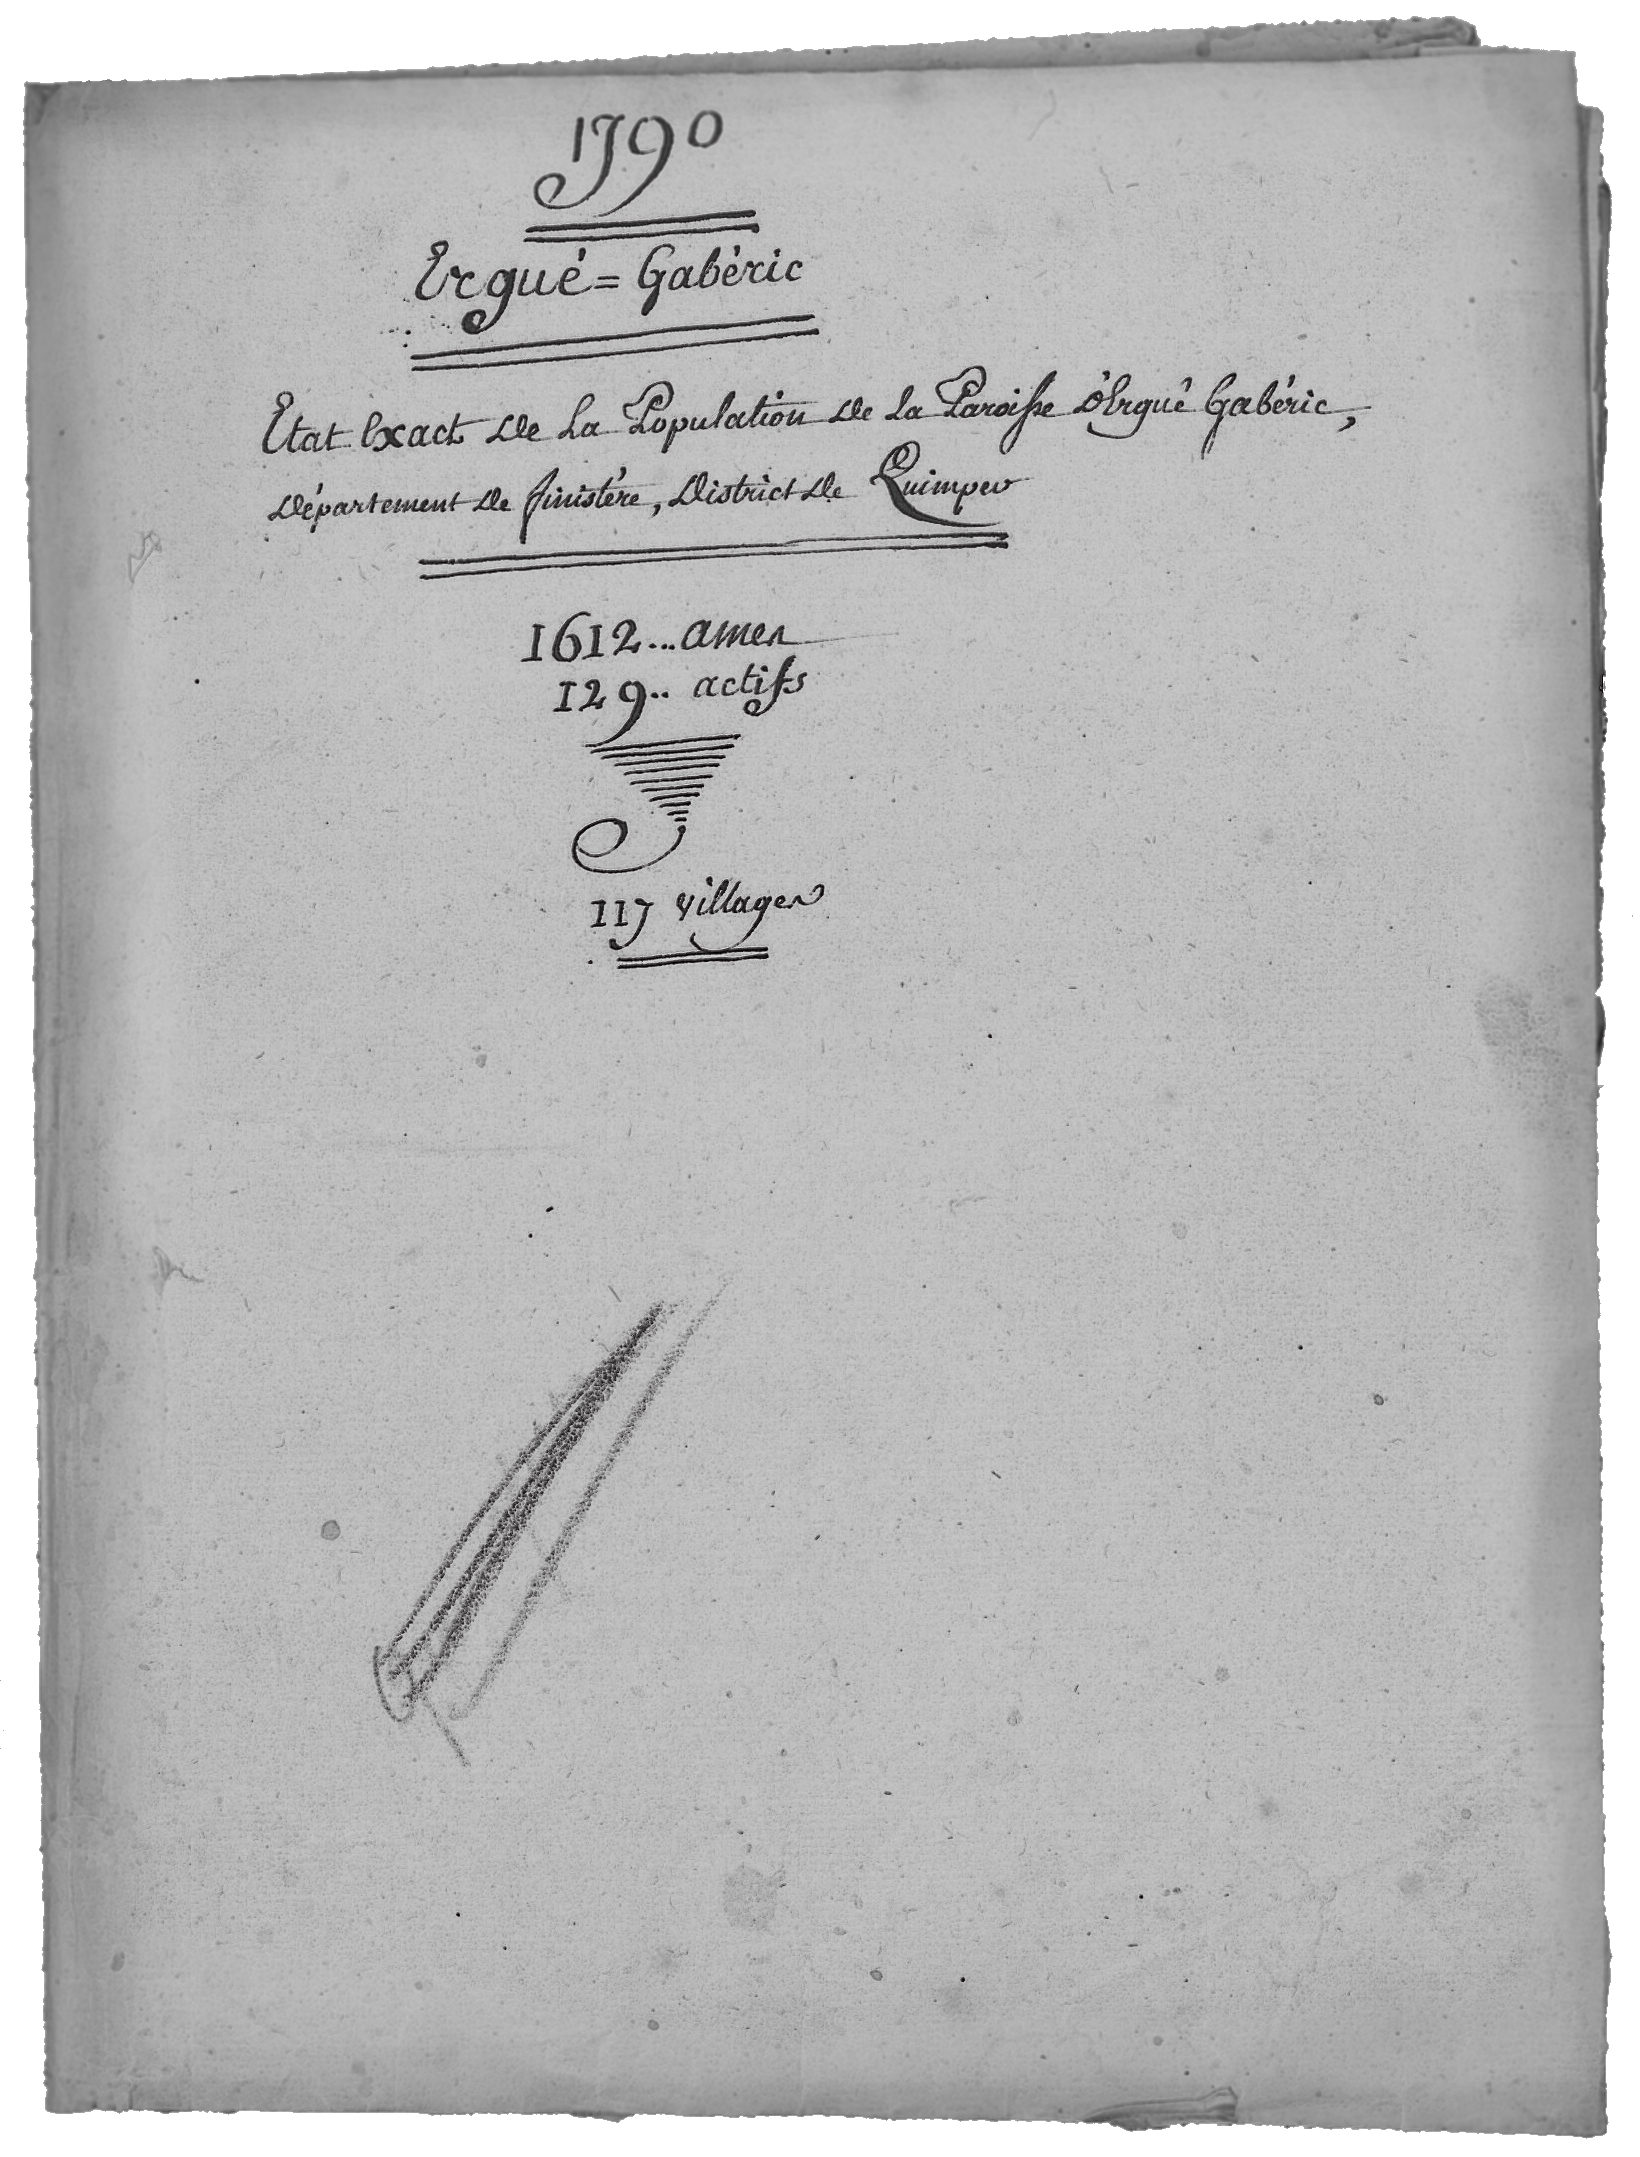 1790
Ergué = Gabéric
Etat Exact De La Population De la Paroisse d'Ergué Gabéric,
Département De finistère, District De Quimper
1612... ames
129.. actifs
117 villages